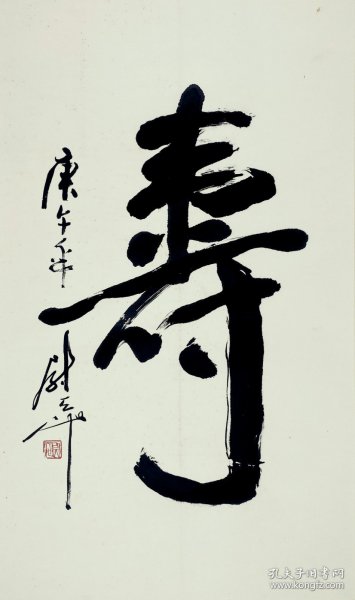 壽
庚午年
孔夫子旧书网
www.kongfz.com